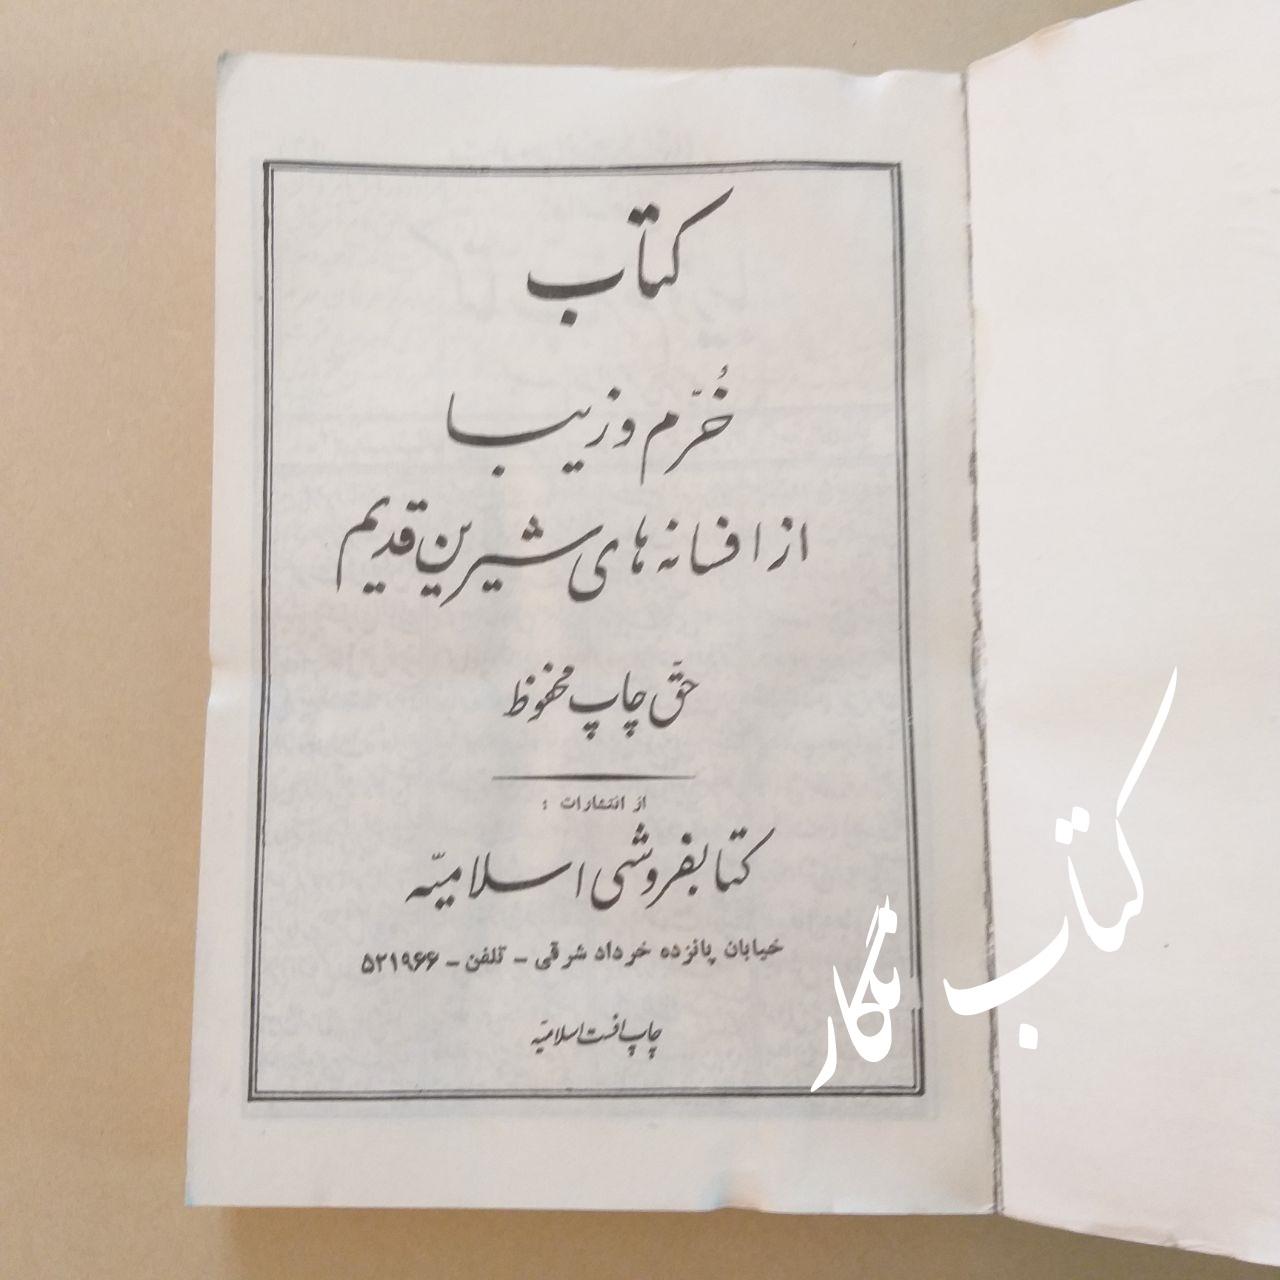 کتاب
خُرّم و زیبا
از افسانه های شیرین قدیم
حقّ چاپ محفوظ
از انتشارات :
کتابفروشی اسلامیّه
خیابان پانزده خرداد شرقی - تلفن - ۵۲۱۹۶۶
چاپ افست اسلامیّه
کتاب نگار